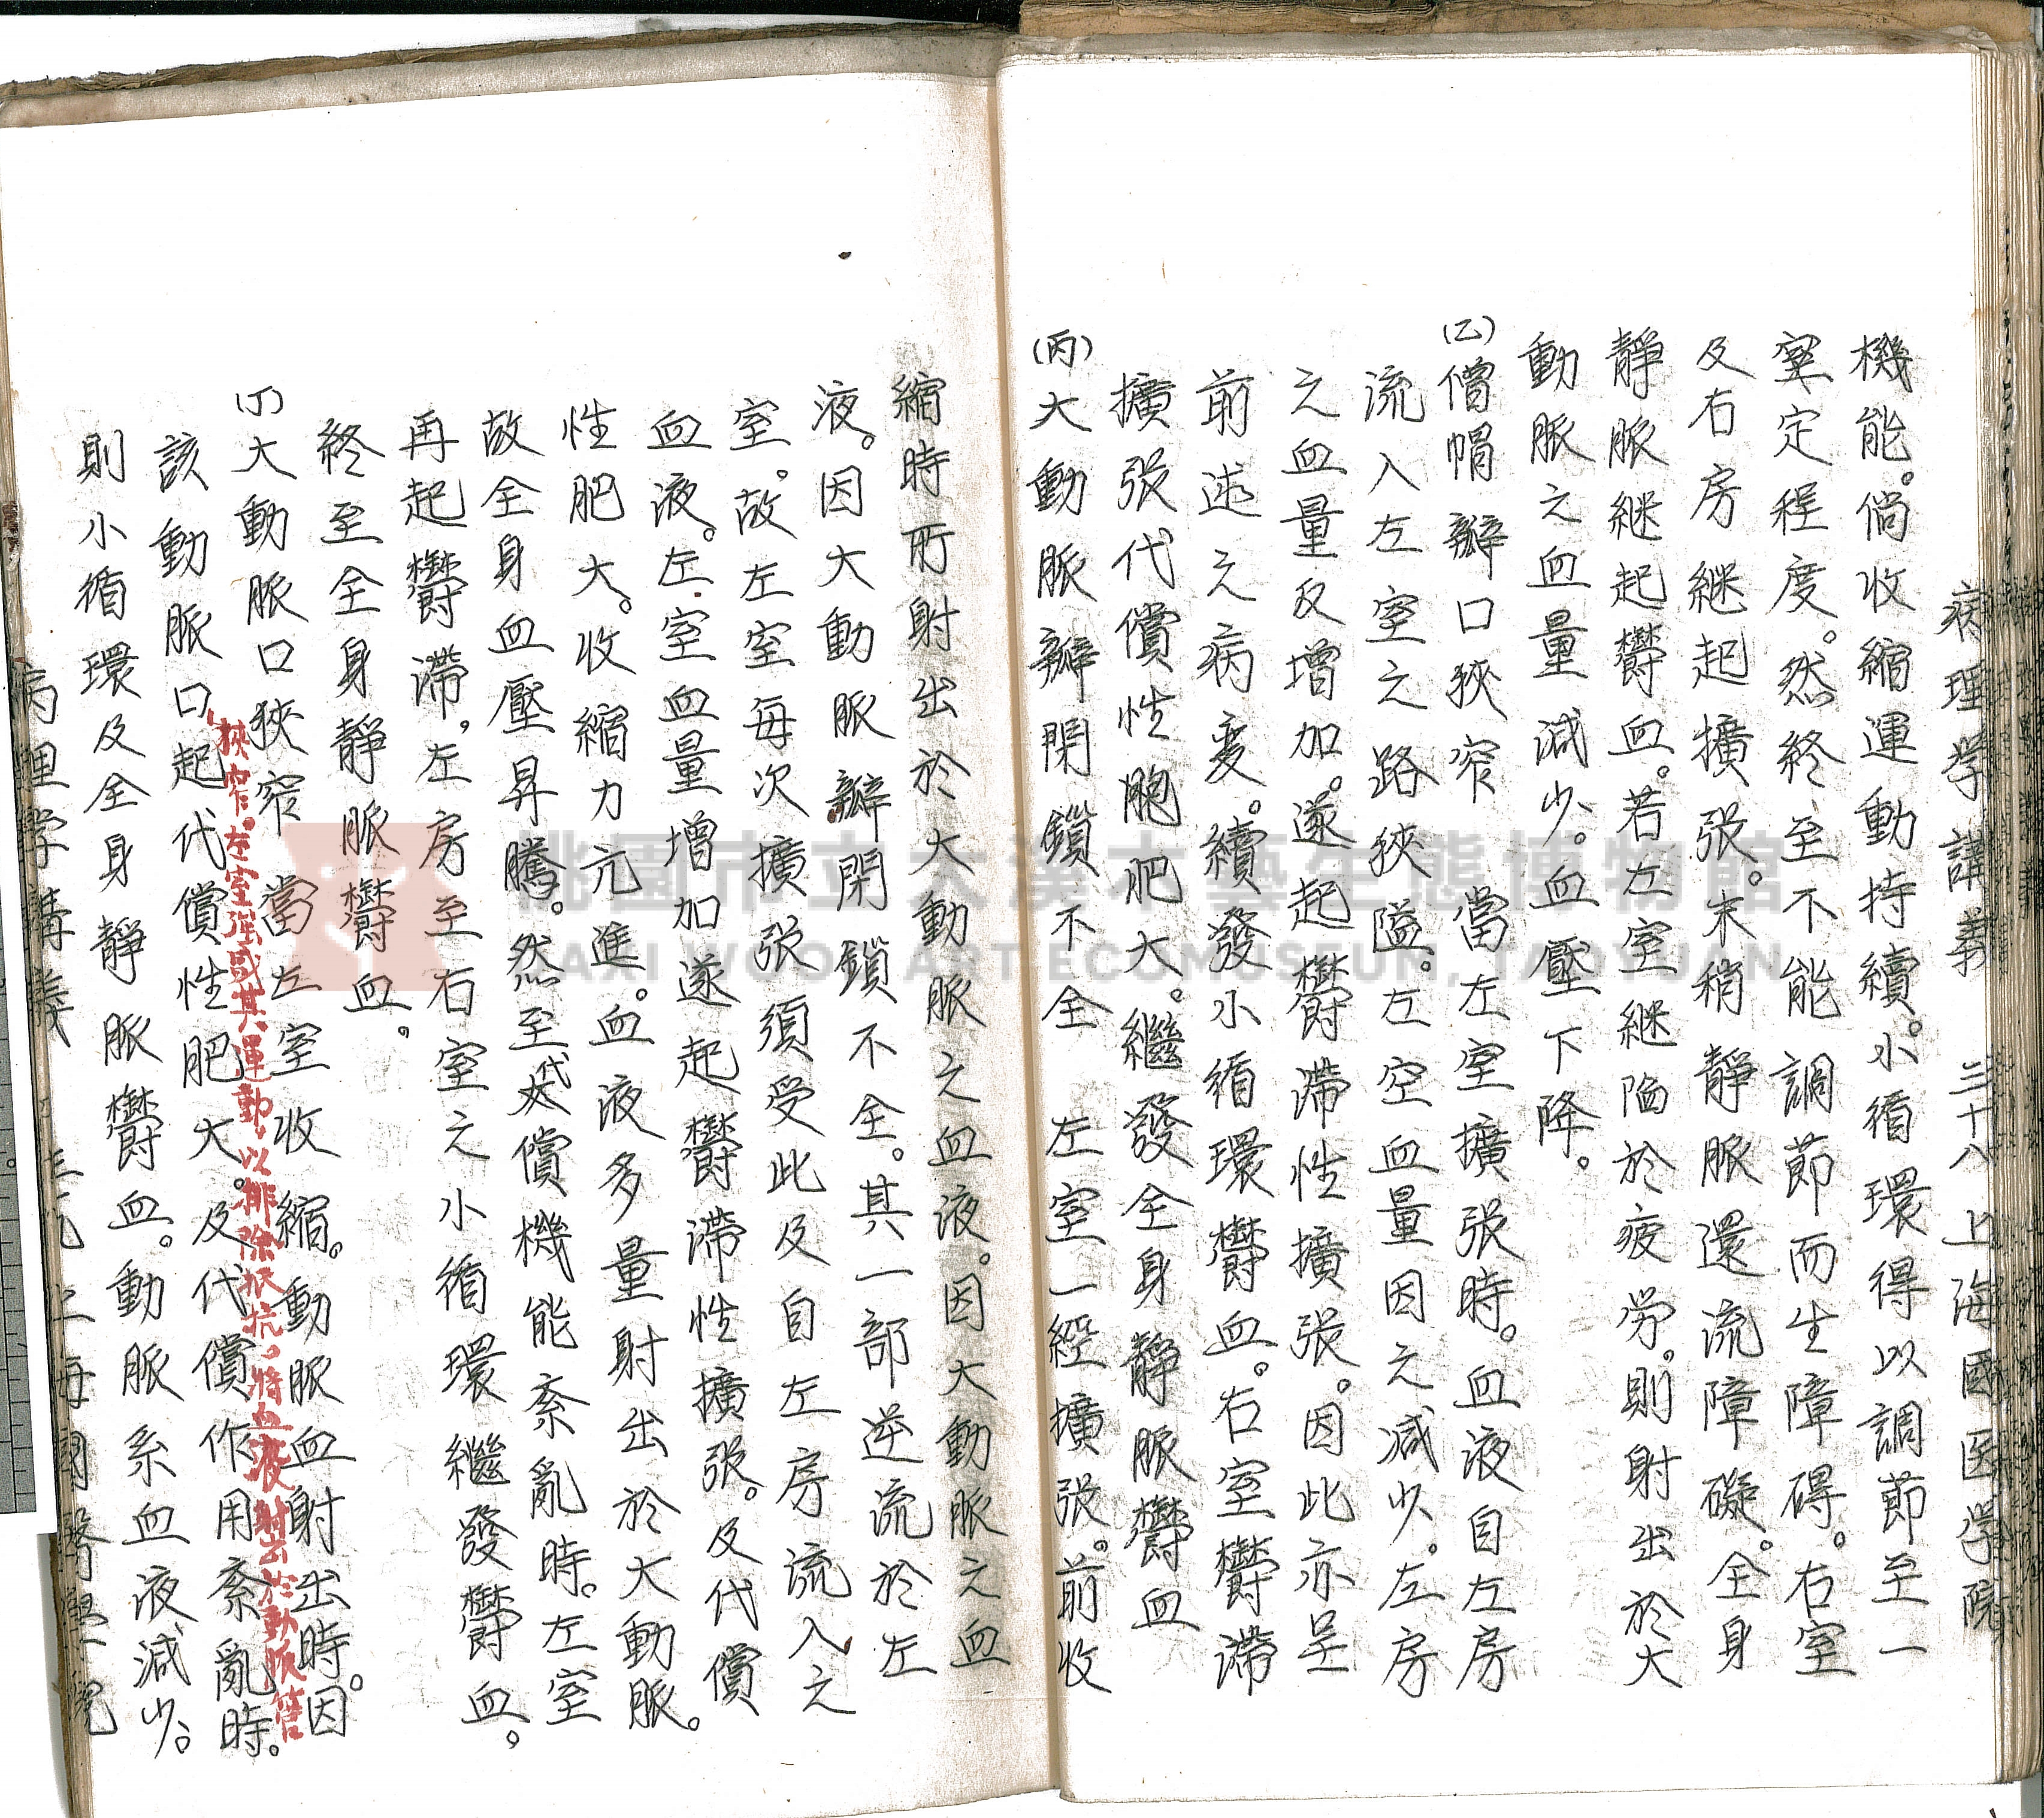 病理学講義 三十八 上海國医学院
機能。倘收縮運動持續。小循環得以調節至一
定程度。然終至不能調節而生障碍。右室
及右房継起擴張。末稍靜脈還流障礙。全身
靜脈継起欝血。若左室継陥於疲労。則射出於大
動脈之血量減少。血壓下降。
(乙)僧帽瓣口狹窄 當左室擴張時。血液自左房
流入左室之路狹隘。左空血量因之減少。左房
之血量反增加。遂起欝滯性擴張。因此亦呈
前述之病変。續發小循環欝血。右室欝滯
擴張代償性胞肥大。繼發全身靜脈欝血
(丙)大動脈瓣閉鎖不全 左室一經擴張。前收
縮時所射出於大動脈之血液。因大動脈之血
液。因大動脈瓣閉鎖不全。其一部逆流於左
室。故左室每次擴張須受此及自左房流入之
血液。左室血量增加遂起欝滯性擴張。及代償
性肥大。收縮力元進。血液多量射出於大動脈。
故全身血壓昇騰。然至代償機能紊亂時。左室
再起欝滯，左房至右室之小循環繼發欝血。
終至全身靜脈欝血。
(丁)大動脈口狹窄 當左室收縮。動脈血射出時。因
該動脈口起代償性肥大。及代償作用紊亂時。
狹窄。左室強盛其運動，以排除抵抗，將血液射出於動脈管
則小循環及全身靜脈欝血。動脈系血液減少。
病理学講義